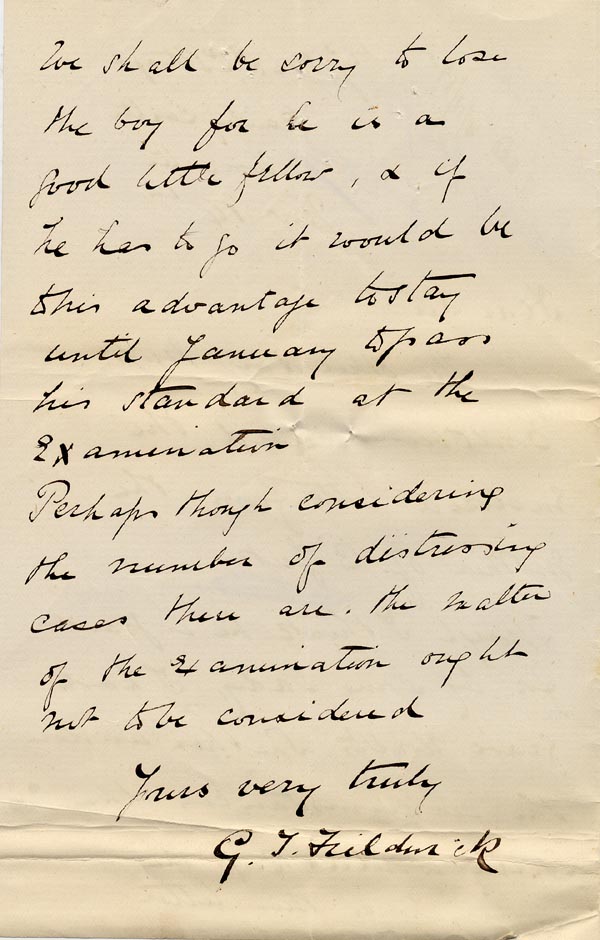 We shall be sorry to lose
the boy for he is a
good little fellow, & if
he has to go it would be
this advantage to stay
until January to pass
his standard at the
Examination
Perhaps though considering
the number of distressing
cases there are. the matter
of the examination ought
not to be considered
Yours very truly
G. T.